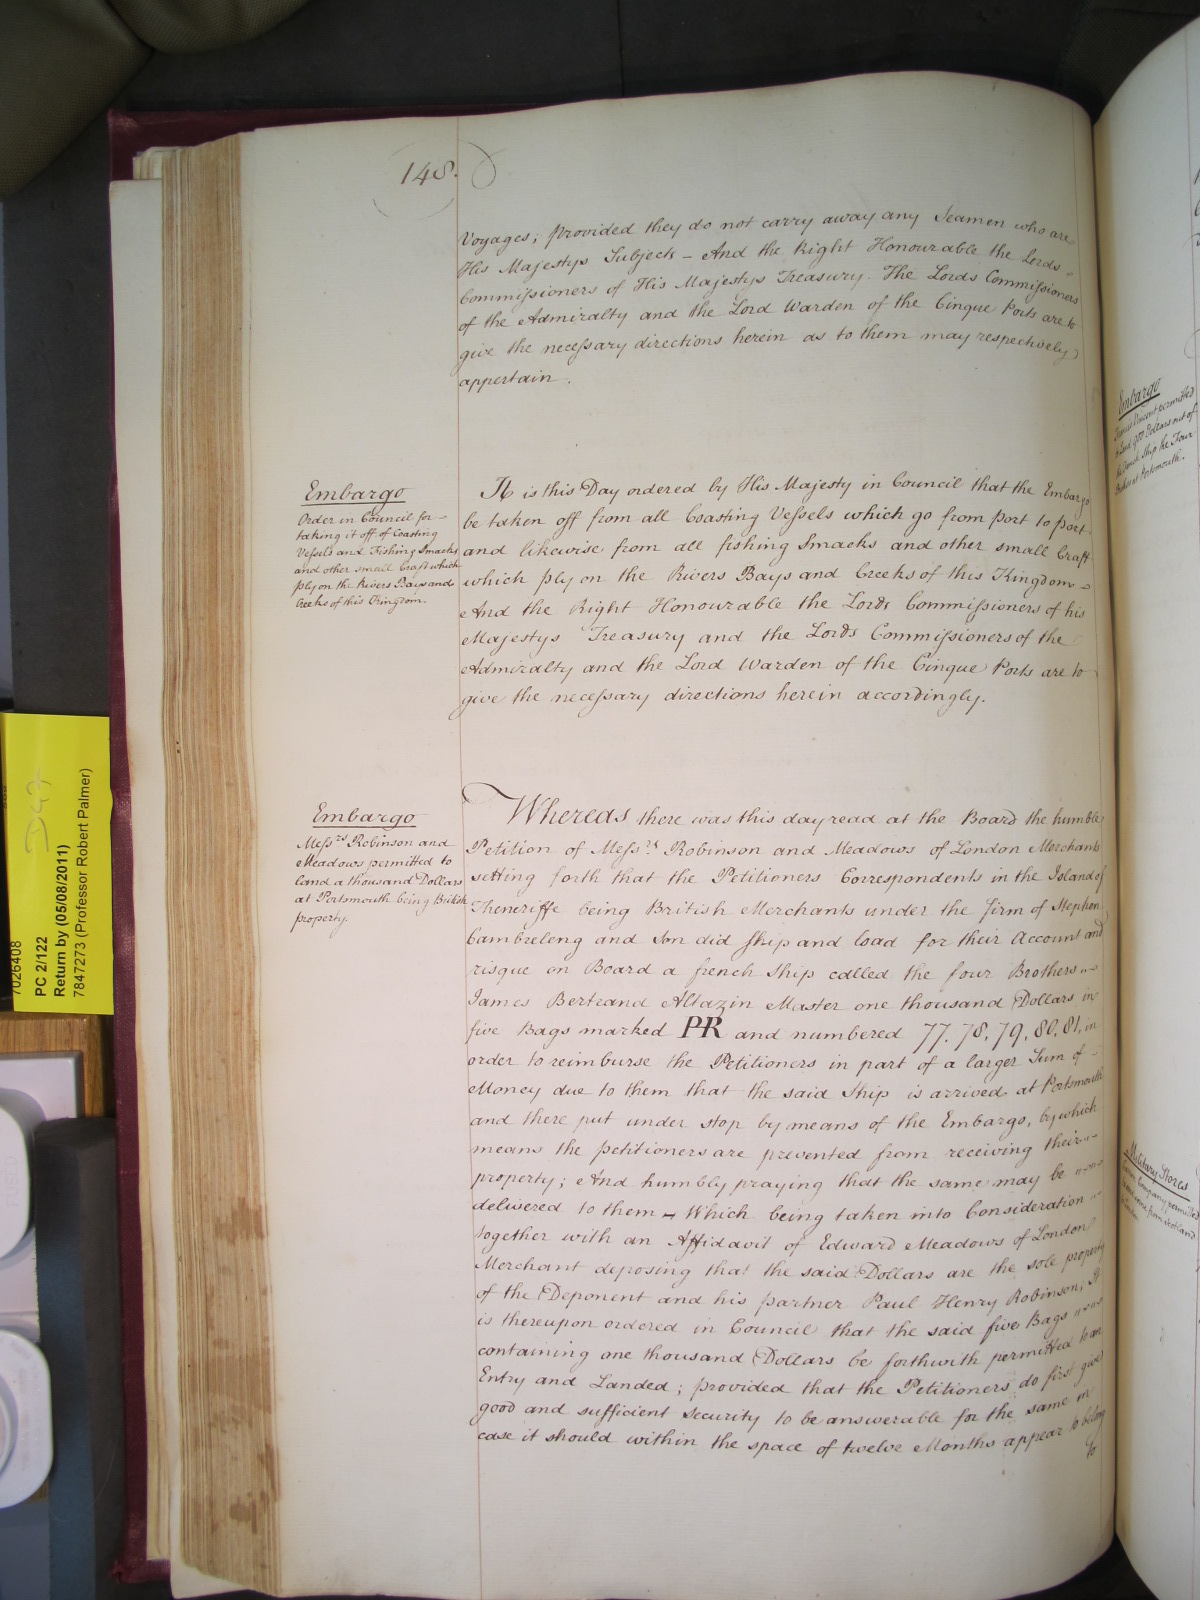 148.
Voyages; provided they do not carry away any Seamen who are
His Majestys Subjects – And the Right Honourable the Lords
Commissioners of His Majestys Treasury. The Lords Commissioners
of the Admiralty and the Lord Warden of the Cinque Ports are to
give the necessary directions herein as to them may respectively
appertain.
Embargo
Order in Council for
taking it off of Coasting
Vessels and Fishing Smacks
and other small Craft which
ply on the Rivers Bays and
Creeks of this Kingdom.
It is this Day ordered by His Majesty in Council that the Embargo
be taken off from all Coasting Vessels which go from port to port
and likewise from all fishing Smacks and other small Craft
which ply on the Rivers Bays and Creeks of this Kingdom
And the Right Honourable the Lords Commissioners of his
Majestys Treasury and the Lords Commissioners of the
Admiralty and the Lord Warden of the Cinque Ports are to
give the necessary directions herein accordingly.
Embargo
Messrs Robinson and
Meadows permitted to
land a thousand Dollars
at Portsmouth being British
property.
Whereas there was this day read at the Board the humble
Petition of Messrs Robinson and Meadows of London Merchants
setting forth that the Petitioners Correspondents in the Island of
Theneriffe being British Merchants under the firm of Stephen
Cambreleng and Son did ship and load for their Account and
risque on Board a french Ship called the four Brothers
James Bertrand Altazin Master one thousand Dollars in
five Bags marked PR and numbered 77. 78, 79, 80, 81, in
order to reimburse the Petitioners in part of a larger Sum of
Money due to them that the said Ship is arrived at Portsmouth
and there put under stop by means of the Embargo, by which
means the petitioners are prevented from receiving their
property; And humbly praying that the same may be
delivered to them – Which being taken into Consideration
together with an Affidavit of Edward Meadows of London
Merchant deposing that the said Dollars are the sole property
of the Deponent and his partner Paul Henry Robinson; It
is thereupon ordered in Council that the said five Bags
containing one thousand Dollars be forthwith permitted to an
Entry and Landed; provided that the Petitioners do first give
good and sufficient security to be answerable for the same in
case it should within the space of twelve Months appear to belong
to
Embargo
James Vincent permitted
to land 900 Dollars out of
Ship the Four
at Portsmouth.
Military Stores
Company permitted
from Scotland
7026408
PC 2/122
Return by (05/08/2011)
7847273 (Professor Robert Palmer)
D47